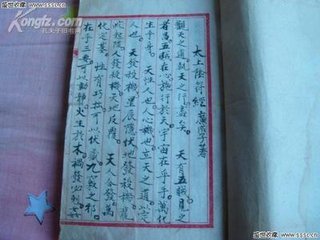 盛世收藏 www.sssc.cn
Kongfz.com
孔夫子旧书网
太上陰符經 廣成子著
觀天之道執天之行盡矣。天有五賊見之
者昌五賊在心施行於天宇宙在乎手萬化
生乎身。天性人也人心機也立天之道以定
人也。天發殺機星辰隕伏地發殺機龍
蛇起陸人發殺機天地反覆。天人合發萬
化定基。性有巧拙可以伏藏九竅之邪
在乎三要可以動靜火生於木禍發必剋姦
盛世收藏 www.sssc.cn